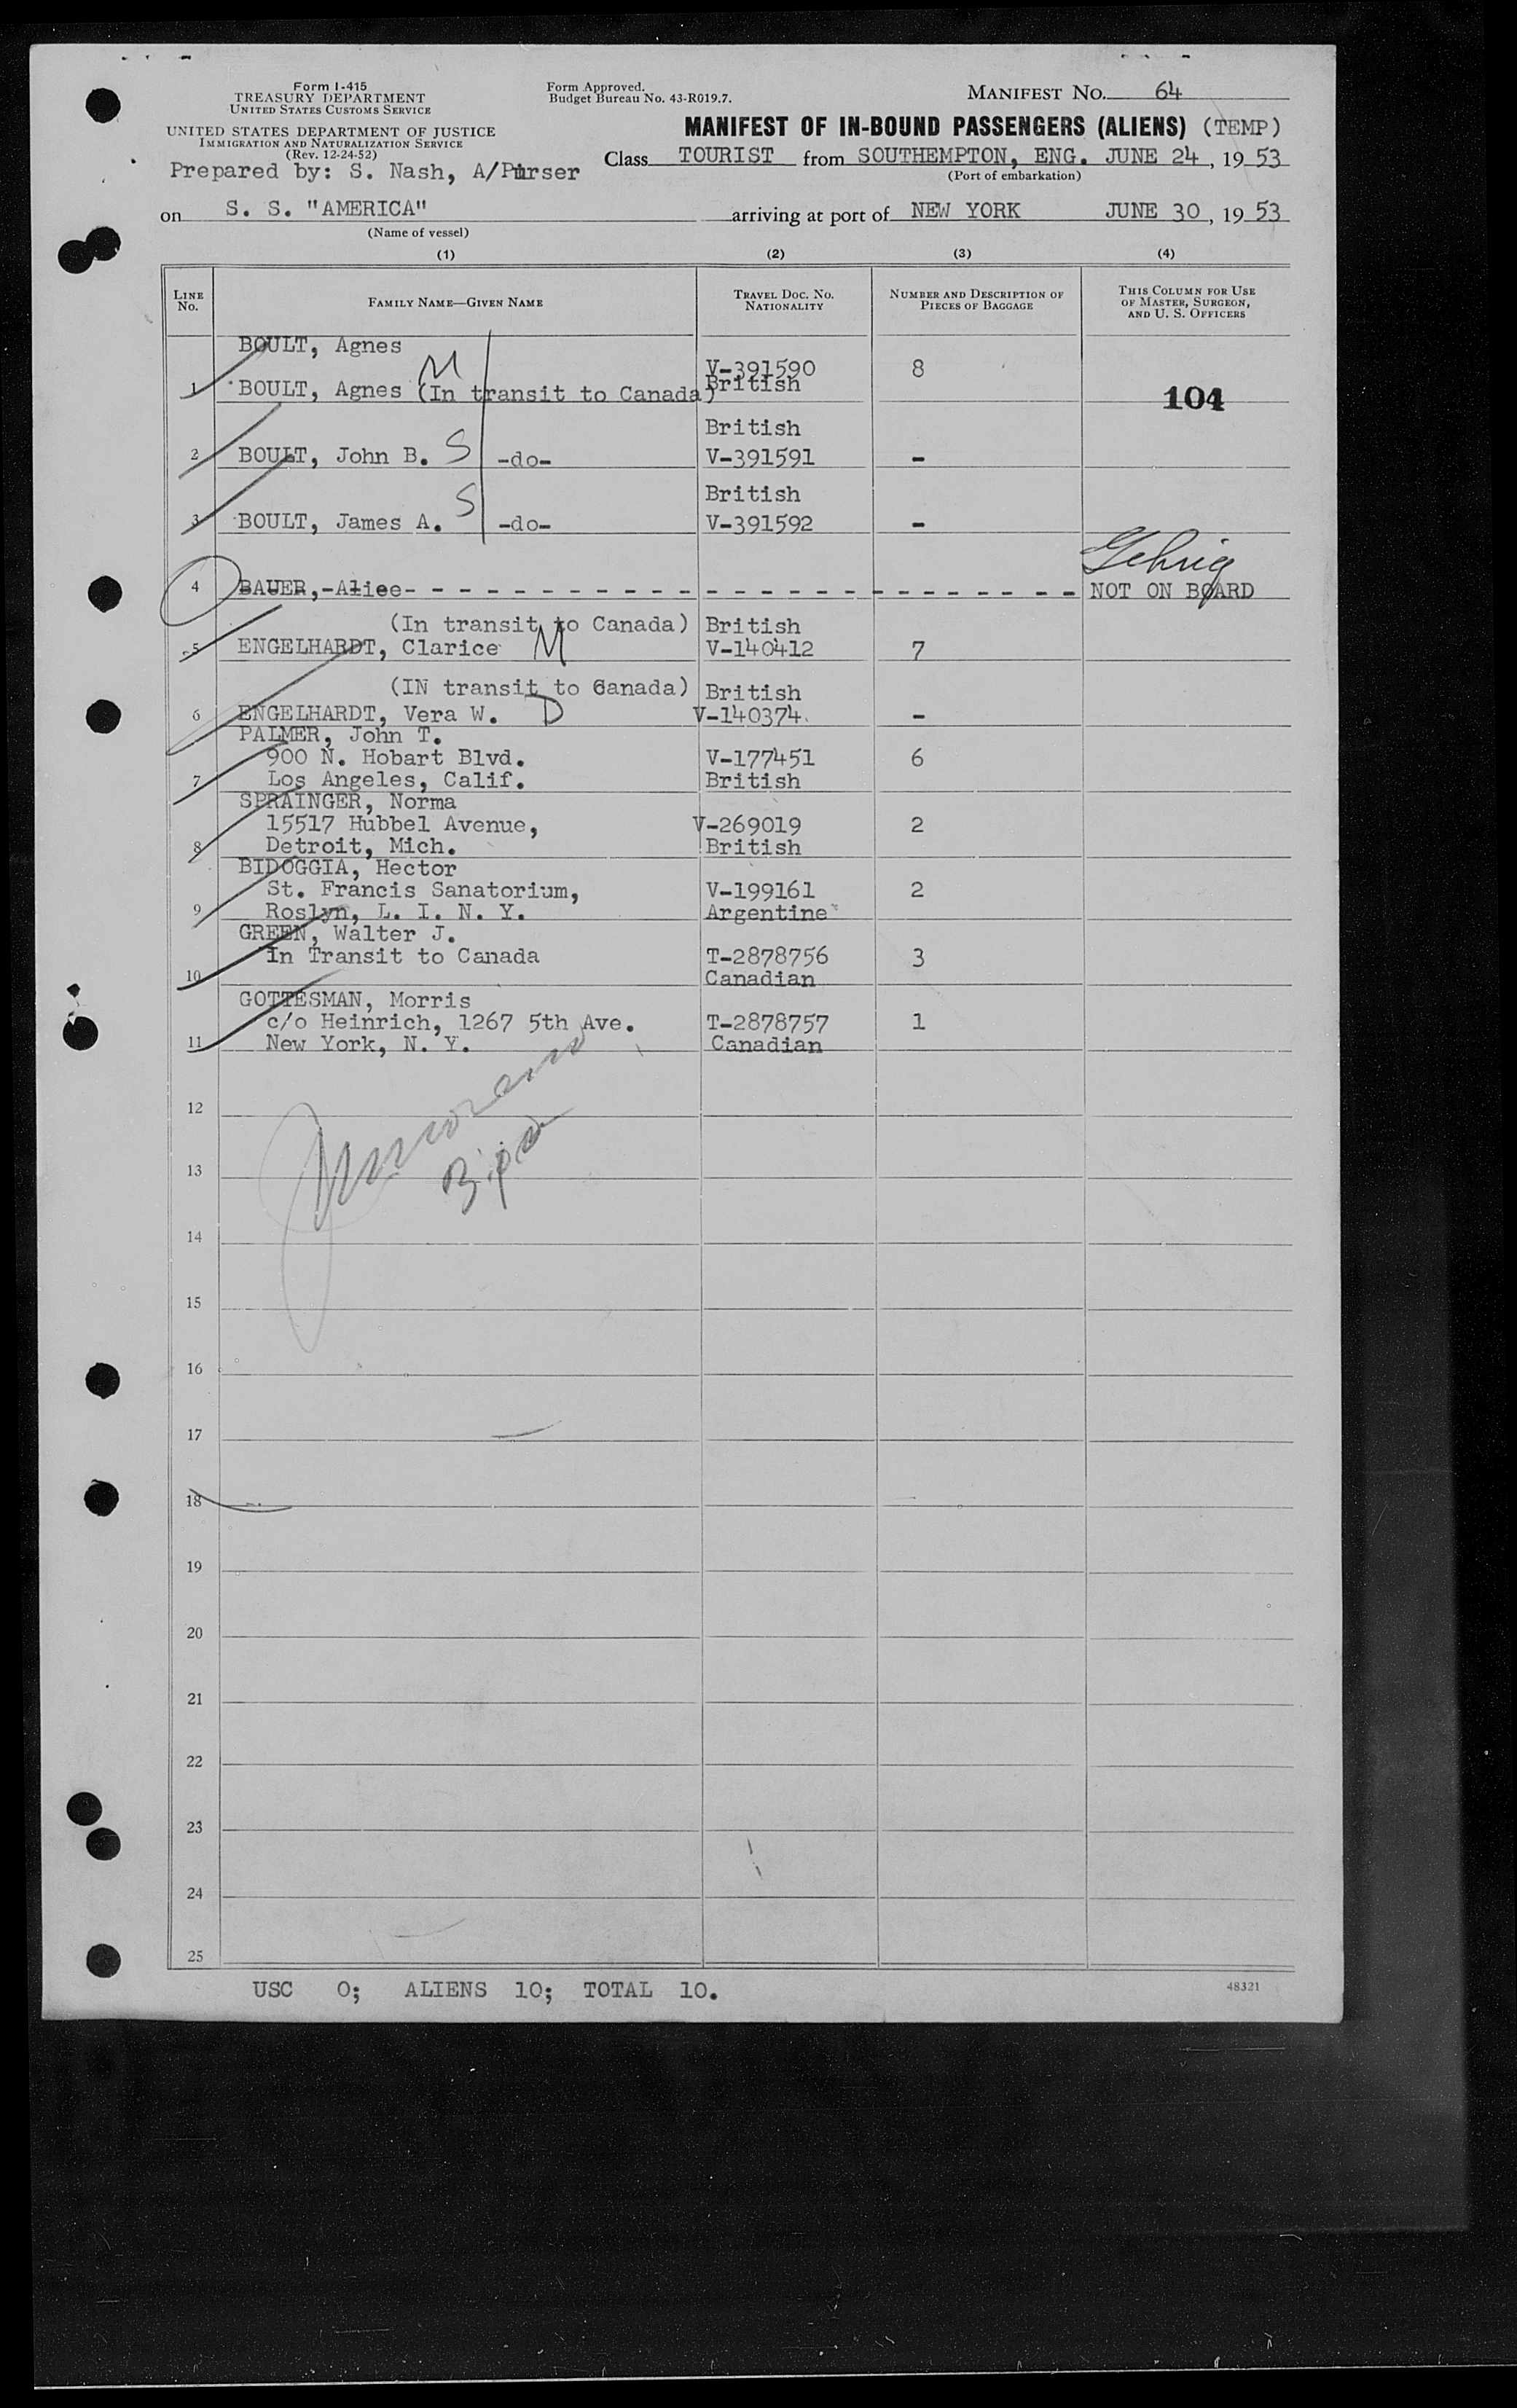 Form I-415
TREASURY DEPARTMENT
UNITED STATES CUSTOMS SERVICE
UNITED STATES DEPARTMENT OF JUSTICE
IMMIGRATION AND NATURALIZATION SERVICE
(Rev. 12-24-52)
Prepared by: S. Nash, A/Purser
Form Approved.
Budget Bureau No. 43-R019.7.
MANIFEST NO. 64
MANIFEST OF IN-BOUND PASSENGERS (ALIENS) (TEMP)
Class TOURIST from SOUTHEMPTON, ENG. JUNE 24, 19 53
(Port of embarkation)
on S. S. "AMERICA" arriving at port of NEW YORK JUNE 30, 19 53
(Name of vessel)
(1) (2) (3) (4)
LINE No. FAMILY NAME—GIVEN NAME TRAVEL DOC. NO. NATIONALITY NUMBER AND DESCRIPTION OF PIECES OF BAGGAGE THIS COLUMN FOR USE OF MASTER, SURGEON, AND U. S. OFFICERS
BOULT, Agnes
M V-391590 8
1 BOULT, Agnes (In transit to Canada) British 104
British
2 BOULT, John B. S -do- V-391591 -
British
3 BOULT, James A. S -do- V-391592 -
Gehrig
4 BAUER, -Alice- - - - - - - - - - - - - - - - - - - - - - NOT ON BOARD
(In transit to Canada) British
5 ENGELHARDT, Clarice M V-140412 7
(IN transit to Canada) British
6 ENGELHARDT, Vera W. D V-140374. -
PALMER, John T.
900 N. Hobart Blvd. V-177451 6
7 Los Angeles, Calif. British
SPRAINGER, Norma
15517 Hubbel Avenue, V-269019 2
8 Detroit, Mich. British
BIDOGGIA, Hector
St. Francis Sanatorium, V-199161 2
9 Roslyn, L. I. N. Y. Argentine
GREEN, Walter J.
In Transit to Canada T-2878756 3
10 Canadian
GOTTESMAN, Morris
c/o Heinrich, 1267 5th Ave. T-2878757 1
11 New York, N. Y. Canadian
12
13
14
15
16
17
18
19
20
21
22
23
24
25
USC 0; ALIENS 10; TOTAL 10.
48321